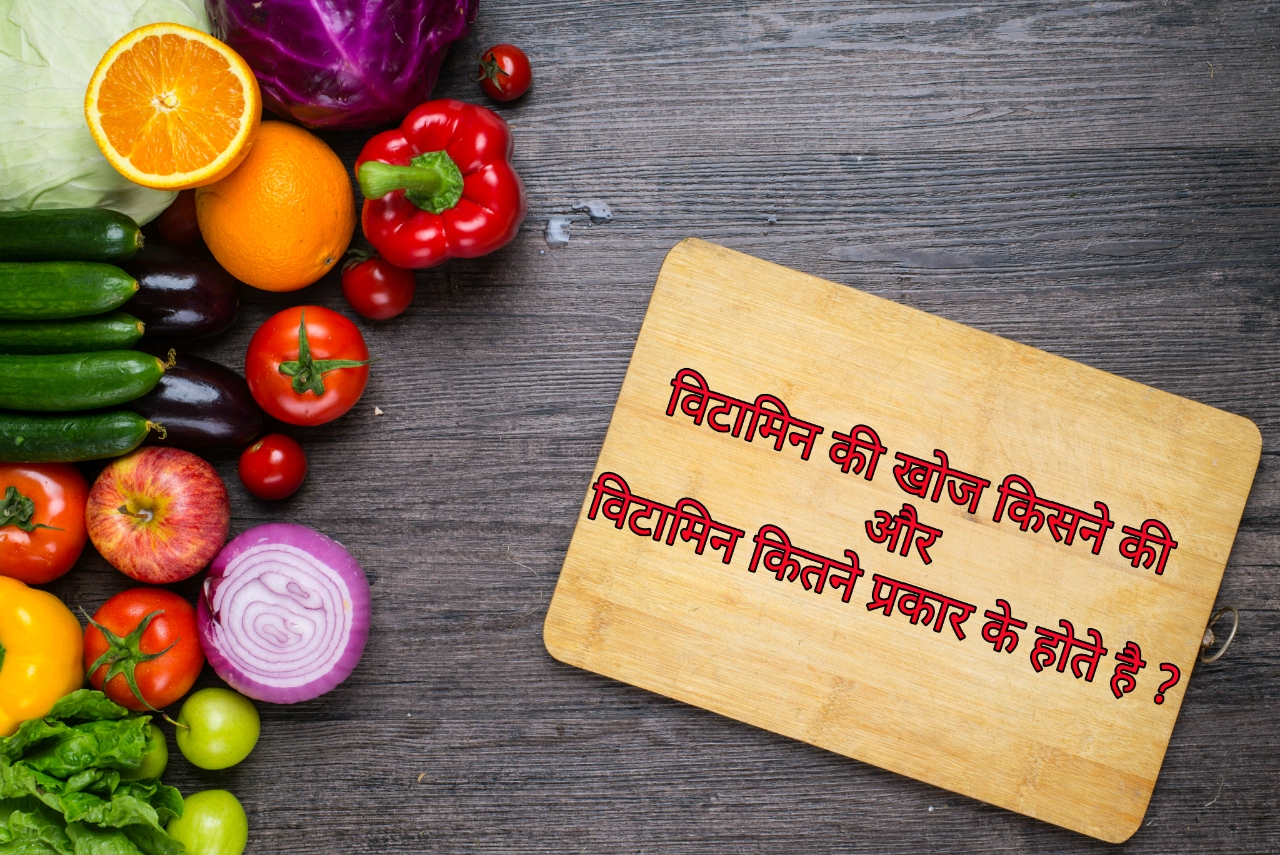 विटामिन की खोज किसने की
और
विटामिन कितने प्रकार के होते है ?